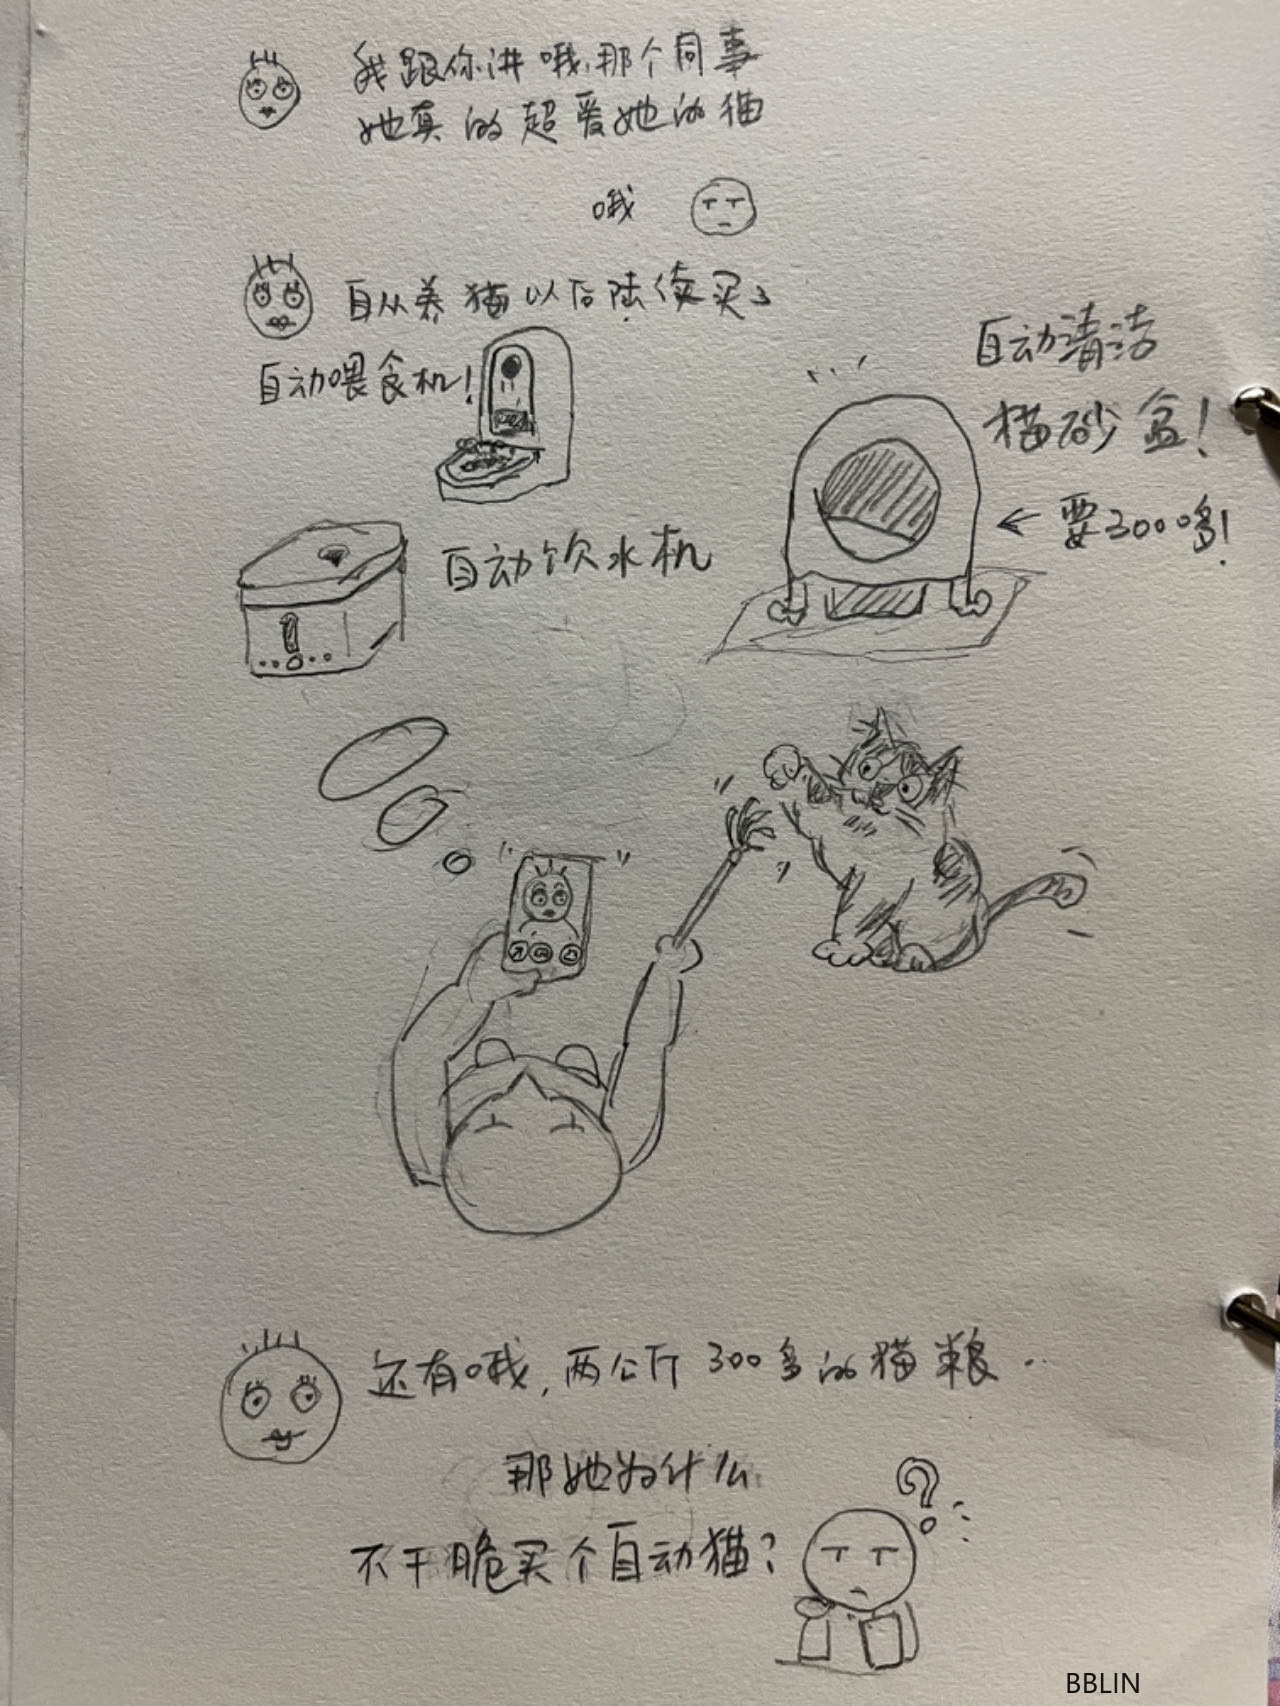 我跟你讲哦,那个同事
她真的超爱她的猫
哦
自从养猫以后陆续买了
自动喂食机!
自动清洁
猫砂盆!
←要3000多!
自动饮水机
还有哦,两公斤300多的猫粮..
那她为什么
不干脆买个自动猫?
?
BBLIN